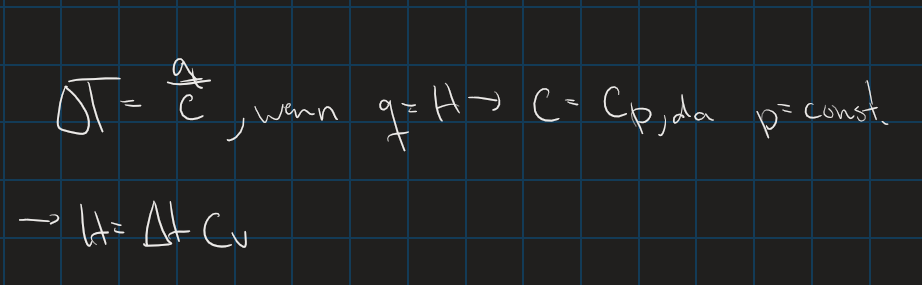 ΔT = q/C, wenn q = H → C = Cp, da p = const.
→ H = Δt Cv